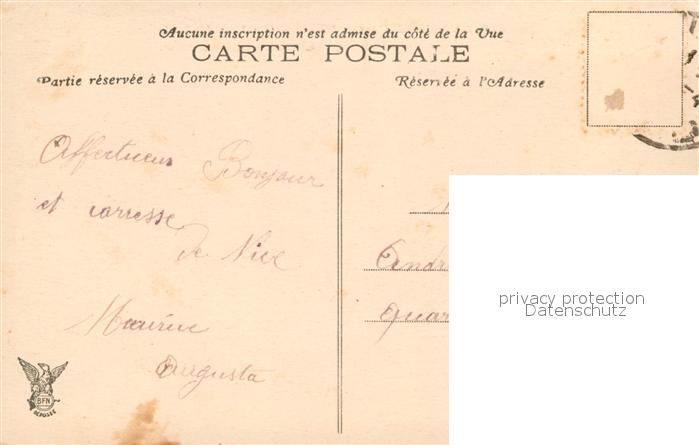 Aucune inscription n'est admise du côté de la Vue
CARTE POSTALE
Partie réservée à la Correspondance
Réservée à l'Adresse
Affectueux Bonjour
et carresse
de Nice
Augusta
Andr
quar
privacy protection
Datenschutz
BFN
DÉPOSÉE